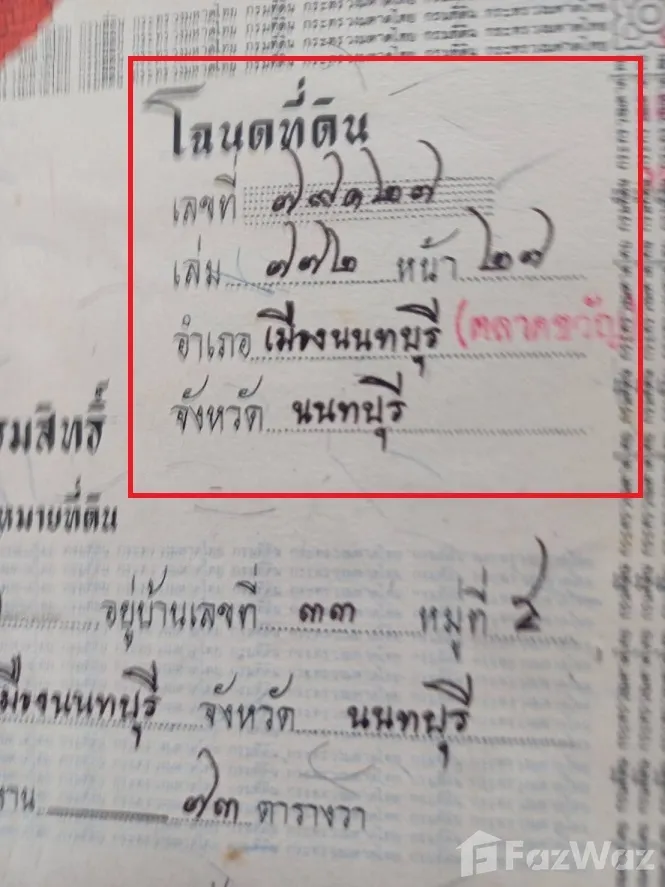 กระทรวงมหาดไทย กรมที่ดิน กระทรวงมหาดไทย กรมที่ดิน กระทรวงมหาดไทย
โฉนดที่ดิน
เลขที่ ๗๗๑๒๗
เล่ม ๗๗๒ หน้า ๒๗
อำเภอ เมืองนนทบุรี (ตลาดขวัญ)
จังหวัด นนทบุรี
รมสิทธิ์
หมายที่ดิน
อยู่บ้านเลขที่ ๓๓ หมู่ที่ ๕
เมืองนนทบุรี จังหวัด นนทบุรี
งาน ๗๓ ตารางวา
FazWaz